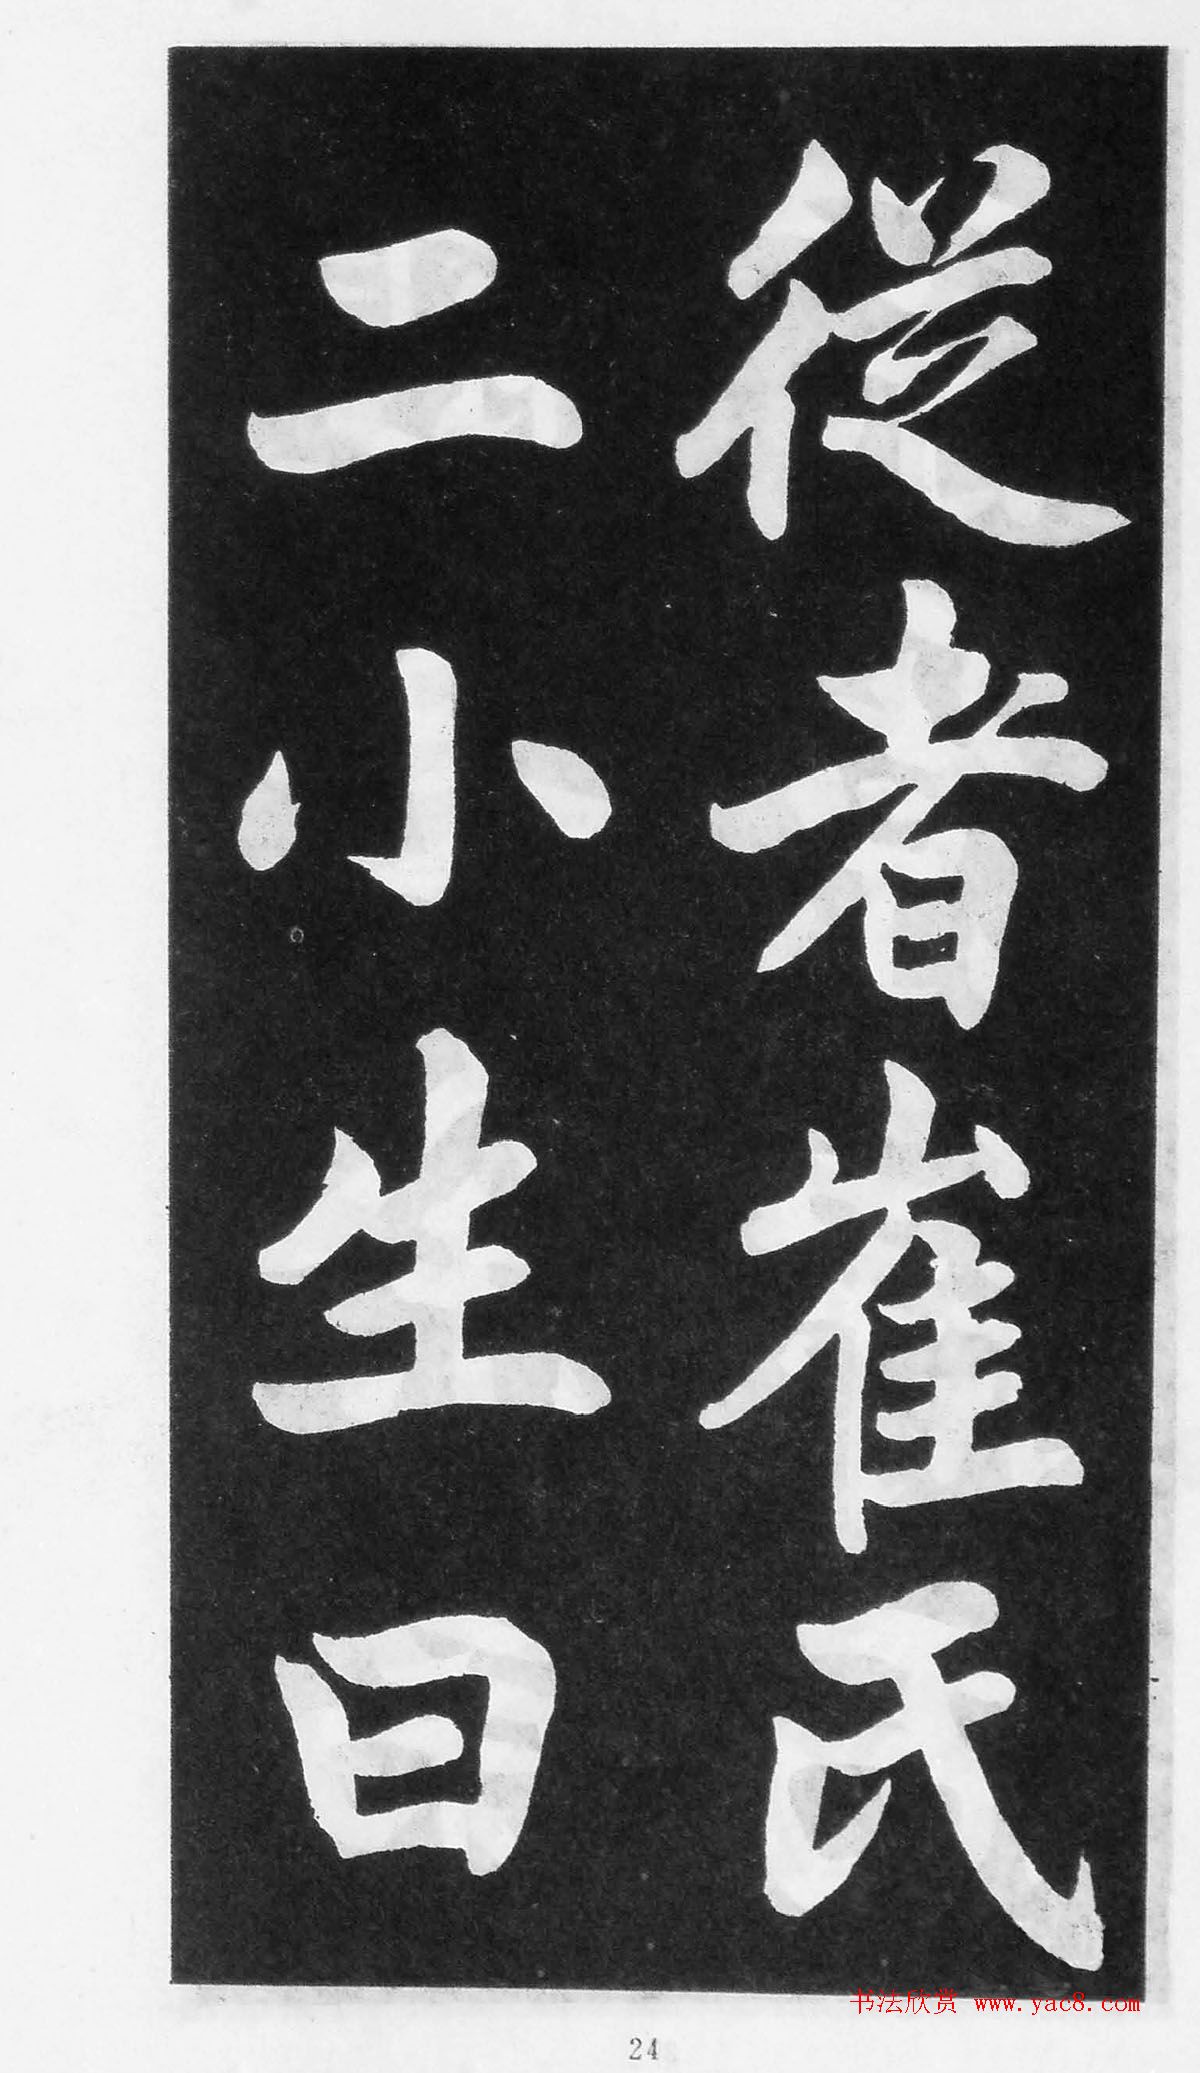 從者崔氏
二小生曰
书法欣赏 www.yac8.com
24